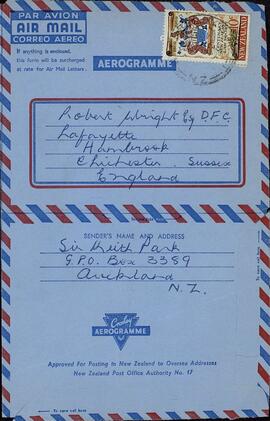 PAR AVION
AIR MAIL
CORREO AEREO
If anything is enclosed,
this form will be surcharged
at rate for Air Mail Letters.
AEROGRAMME
10c
NEW ZEALAND
N.Z.
Robert Wright Esq D.F.C.
Lafayette
Hambrook
Chichester. Sussex
England
SENDER'S NAME AND ADDRESS
Sir Keith Park
G.P.O. Box 3389
Auckland
N.Z.
Croxley
AEROGRAMME
Approved for Posting in New Zealand to Oversea Addresses
New Zealand Post Office Authority No. 17
To open cut here
To open cut here